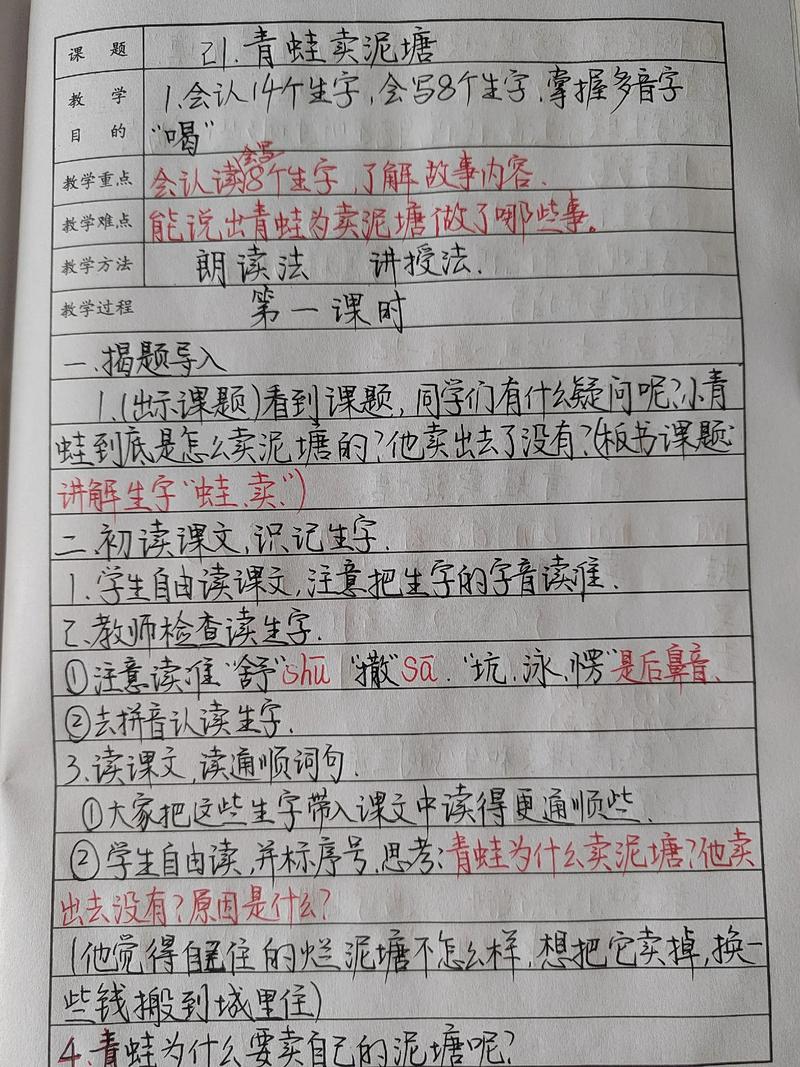 课题 21.青蛙卖泥塘
教学 1.会认14个生字,会写8个生字.掌握多音字
目的 “喝”
会写
教学重点 会认读8个生字,了解故事内容.
教学难点 能说出青蛙为卖泥塘做了哪些事。
教学方法 朗读法 讲授法.
教学过程 第一课时
一.揭题导入
1.(出示课题)看到课题,同学们有什么疑问呢?小青
蛙到底是怎么卖泥塘的?他卖出去了没有?(板书课题:
讲解生字“蛙、卖”)
二.初读课文,识记生字.
1.学生自由读课文,注意把生字的字音读准.
2.教师检查读生字.
①注意读准“舒”shū “撒”sā.“坑、泳、愣”是后鼻音.
②去拼音认读生字.
3.读课文,读通顺词句.
①大家把这些生字带入课文中读得更通顺些.
②学生自由读,并标序号.思考:青蛙为什么卖泥塘?他卖
出去没有?原因是什么?
(他觉得自己住的烂泥塘不怎么样,想把它卖掉,换一
些钱搬到城里住)
4.青蛙为什么要卖自己的泥塘呢?